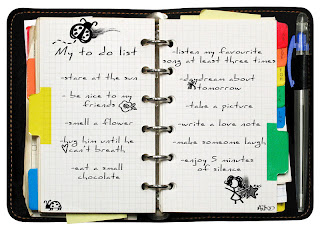 My to do list
-stare at the sun
- be nice to my
friends
-smell a flower
-hug him until he
can't breath
-eat a small
chocolate
-listen my favourite
song at least three times
-daydream about
tomorrow
-take a picture
-write a love note
-make someone laugh
-enjoy 5 minutes
of silence